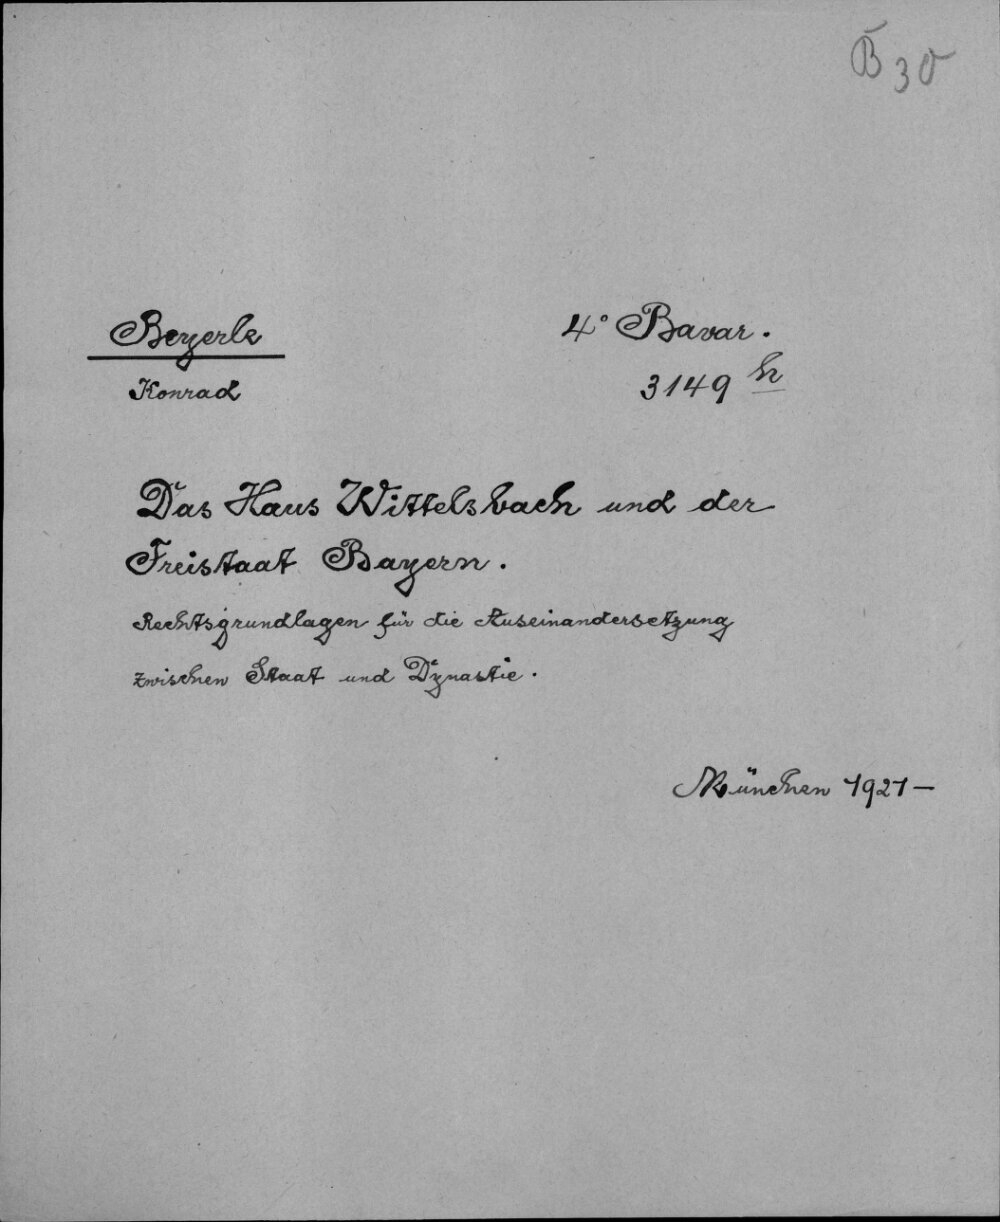 B 30
Beyerle
4° Bavar.
Konrad
3149 h
Das Haus Wittelsbach und der
Freistaat Bayern.
Rechtsgrundlagen für die Auseinandersetzung
zwischen Staat und Dynastie.
München 1921 —